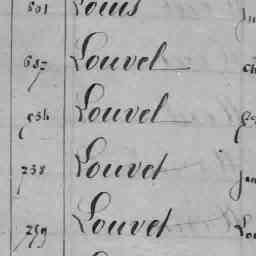 801 Louis
687 Louvel
Louvel
238 Louvet
259 Louvet